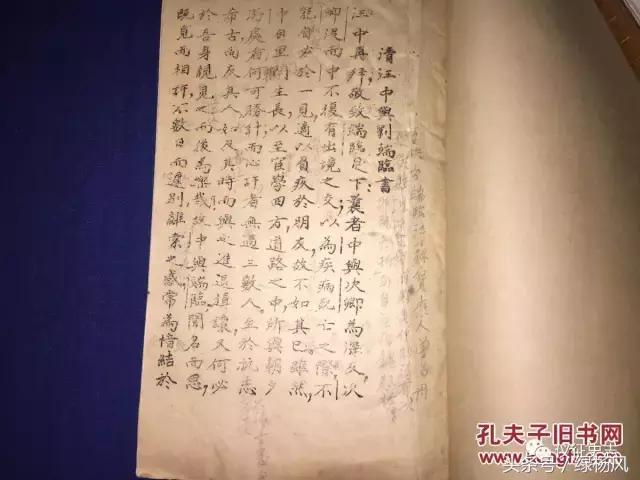 清汪中與劉端臨書
汪中再拜敬致端臨足下；曩者中與次卿為深友，次
卿沒而中不復有出境之交；以為疾病死亡之際不
能自必於一見適以負疚於朋友故不如其已雖然，
中自里閈生長以至宦學四方，道路之中所與朝夕
居處者何可勝計而心許者無過三數人。至於抗志
希古尚友其人如及其時而與之進退揖讓又何必
於吾身親見之而後為樂哉故中與端臨聞名而思，
既見而相許不數日而遽別離索之感常為愔結於
孔夫子旧书网
头条号/绿杨风